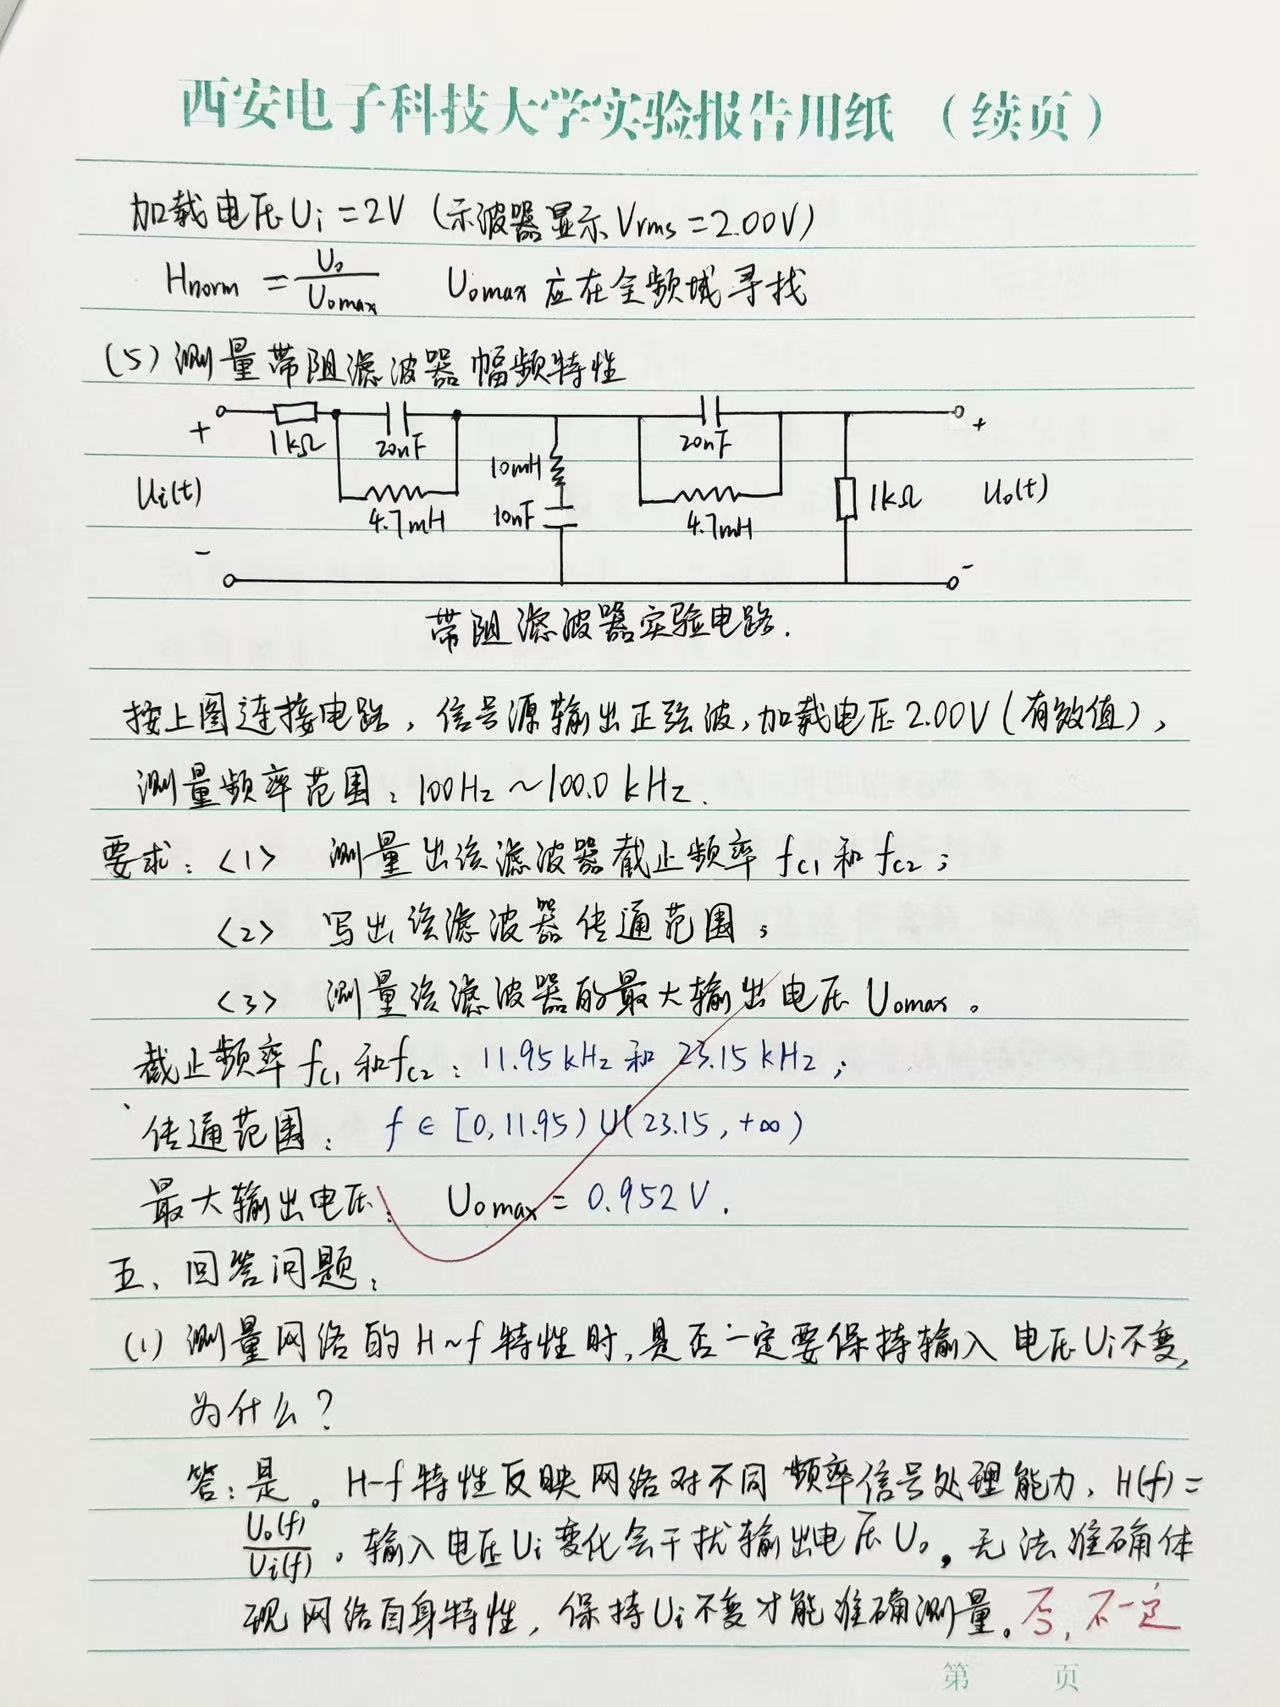 西安电子科技大学实验报告用纸（续页）
加载电压Ui=2V（示波器显示Vrms=2.00V）
Hnorm = Uo/Uomax  Uomax应在全频域寻找
(5) 测量带阻滤波器幅频特性
+ 1kΩ 20nF 20nF +
Ui(t) 4.7mH 10mH 10nF 4.7mH 1kΩ Uo(t)
- -
带阻滤波器实验电路.
按上图连接电路，信号源输出正弦波，加载电压2.00V（有效值），
测量频率范围：100Hz～100.0kHz.
要求：<1> 测量出该滤波器截止频率fc1和fc2；
<2> 写出该滤波器传通范围；
<3> 测量该滤波器的最大输出电压Uomax。
截止频率fc1和fc2：11.95kHz和23.15kHz；
传通范围：f∈[0,11.95)U(23.15,+∞)
最大输出电压：Uomax=0.952V.
五、回答问题：
(1) 测量网络的H~f特性时，是否一定要保持输入电压Ui不变，
为什么？
答：是。H-f特性反映网络对不同频率信号处理能力，H(f)=
Uo(f)/Ui(f)。输入电压Ui变化会干扰输出电压Uo，无法准确体
现网络自身特性，保持Ui不变才能准确测量。否，不一定
第 页